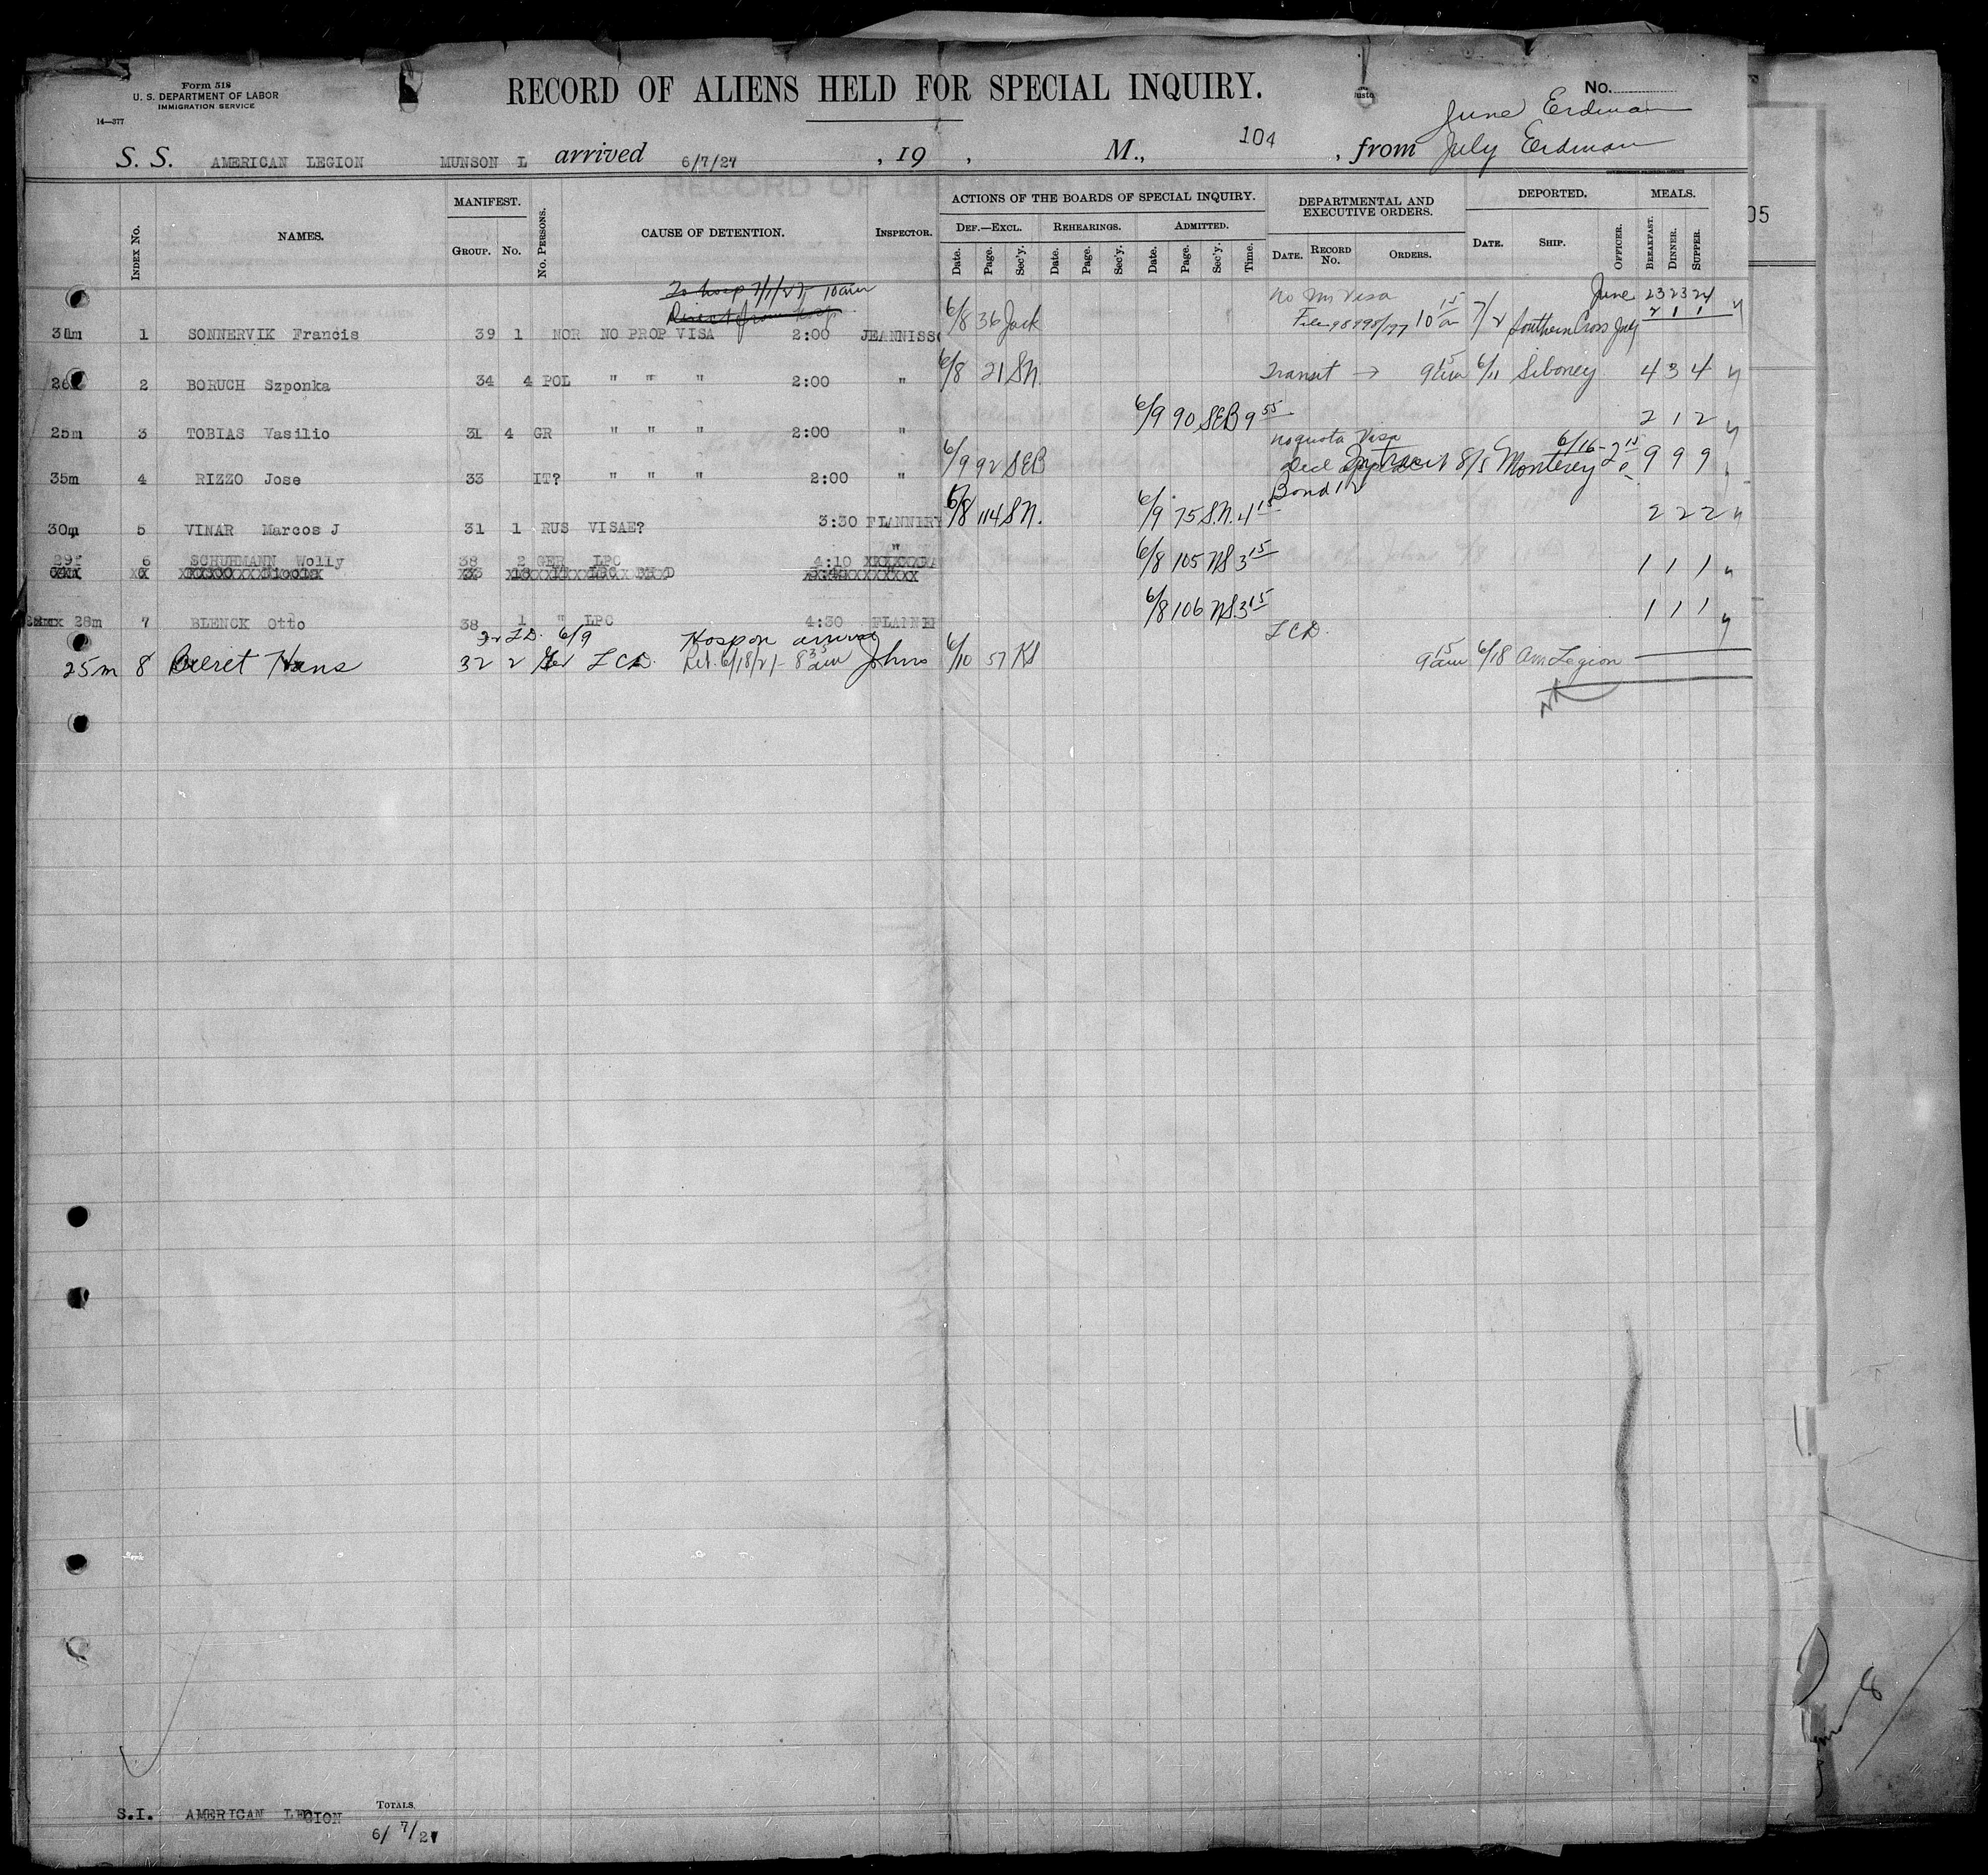 Form 518
U. S. DEPARTMENT OF LABOR
IMMIGRATION SERVICE
14—377
RECORD OF ALIENS HELD FOR SPECIAL INQUIRY.
No.
June Erdman
S. S. AMERICAN LEGION MUNSON L arrived 6/7/27, 19 , M., 104, from July Erdman
INDEX No. NAMES. MANIFEST. GROUP. No. No. PERSONS. CAUSE OF DETENTION. INSPECTOR.
ACTIONS OF THE BOARDS OF SPECIAL INQUIRY. DEF.—EXCL. Date. Page. Sec'y. REHEARINGS. Date. Page. Sec'y. ADMITTED. Date. Page. Sec'y. Time.
DEPARTMENTAL AND EXECUTIVE ORDERS. DATE. RECORD No. ORDERS. DEPORTED. DATE. SHIP. OFFICER. MEALS. BREAKFAST. DINNER. SUPPER.
05
To hosp 7/1/27 10am
No Im Visa June 23 23 24
1 SONNERVIK Francis 39 1 NOR NO PROP VISA 2:00 JEANNISSO 6/8 36 Jack 10 15 am 7/2 Southern Cross July 2 1 1
2 BORUCH Szponka 34 4 POL " " " 2:00 " 6/8 21 S.N. Transit → 9 15 am 6/11 Siboney 4 3 4
25m 3 TOBIAS Vasilio 31 4 GR " " " 2:00 " 6/9 90 SEB 9 55 2 1 2
no quota Visa 6/16 - 2 15
35m 4 RIZZO Jose 33 IT? " " " 2:00 " 6/9 92 SEB In transit 8/5 Monterey 9 9 9
Bond
30m 5 VINAR Marcos J 31 1 RUS VISAE? 3:30 FLANNERY 6/8 114 S.N. 6/9 75 S.N. 4 15 2 2 2
29f 6 SCHUHMANN Wolly 38 2 GER LPC 4:10 " 6/8 105 NS 3 15 1 1 1
28m 7 BLENCK Otto 38 1 " LPC 4:30 FLANNER 6/8 106 NS 3 15 1 1 1
6/9 Hosp on arrival LCD.
25m 8 Hans 32 2 Ger LCD. Rel. 6/18/27 - 8 35 am Johns 6/10 57 KS 9 15 am 6/18 Am Legion
8
S.I. AMERICAN LEGION TOTALS.
6/7/27